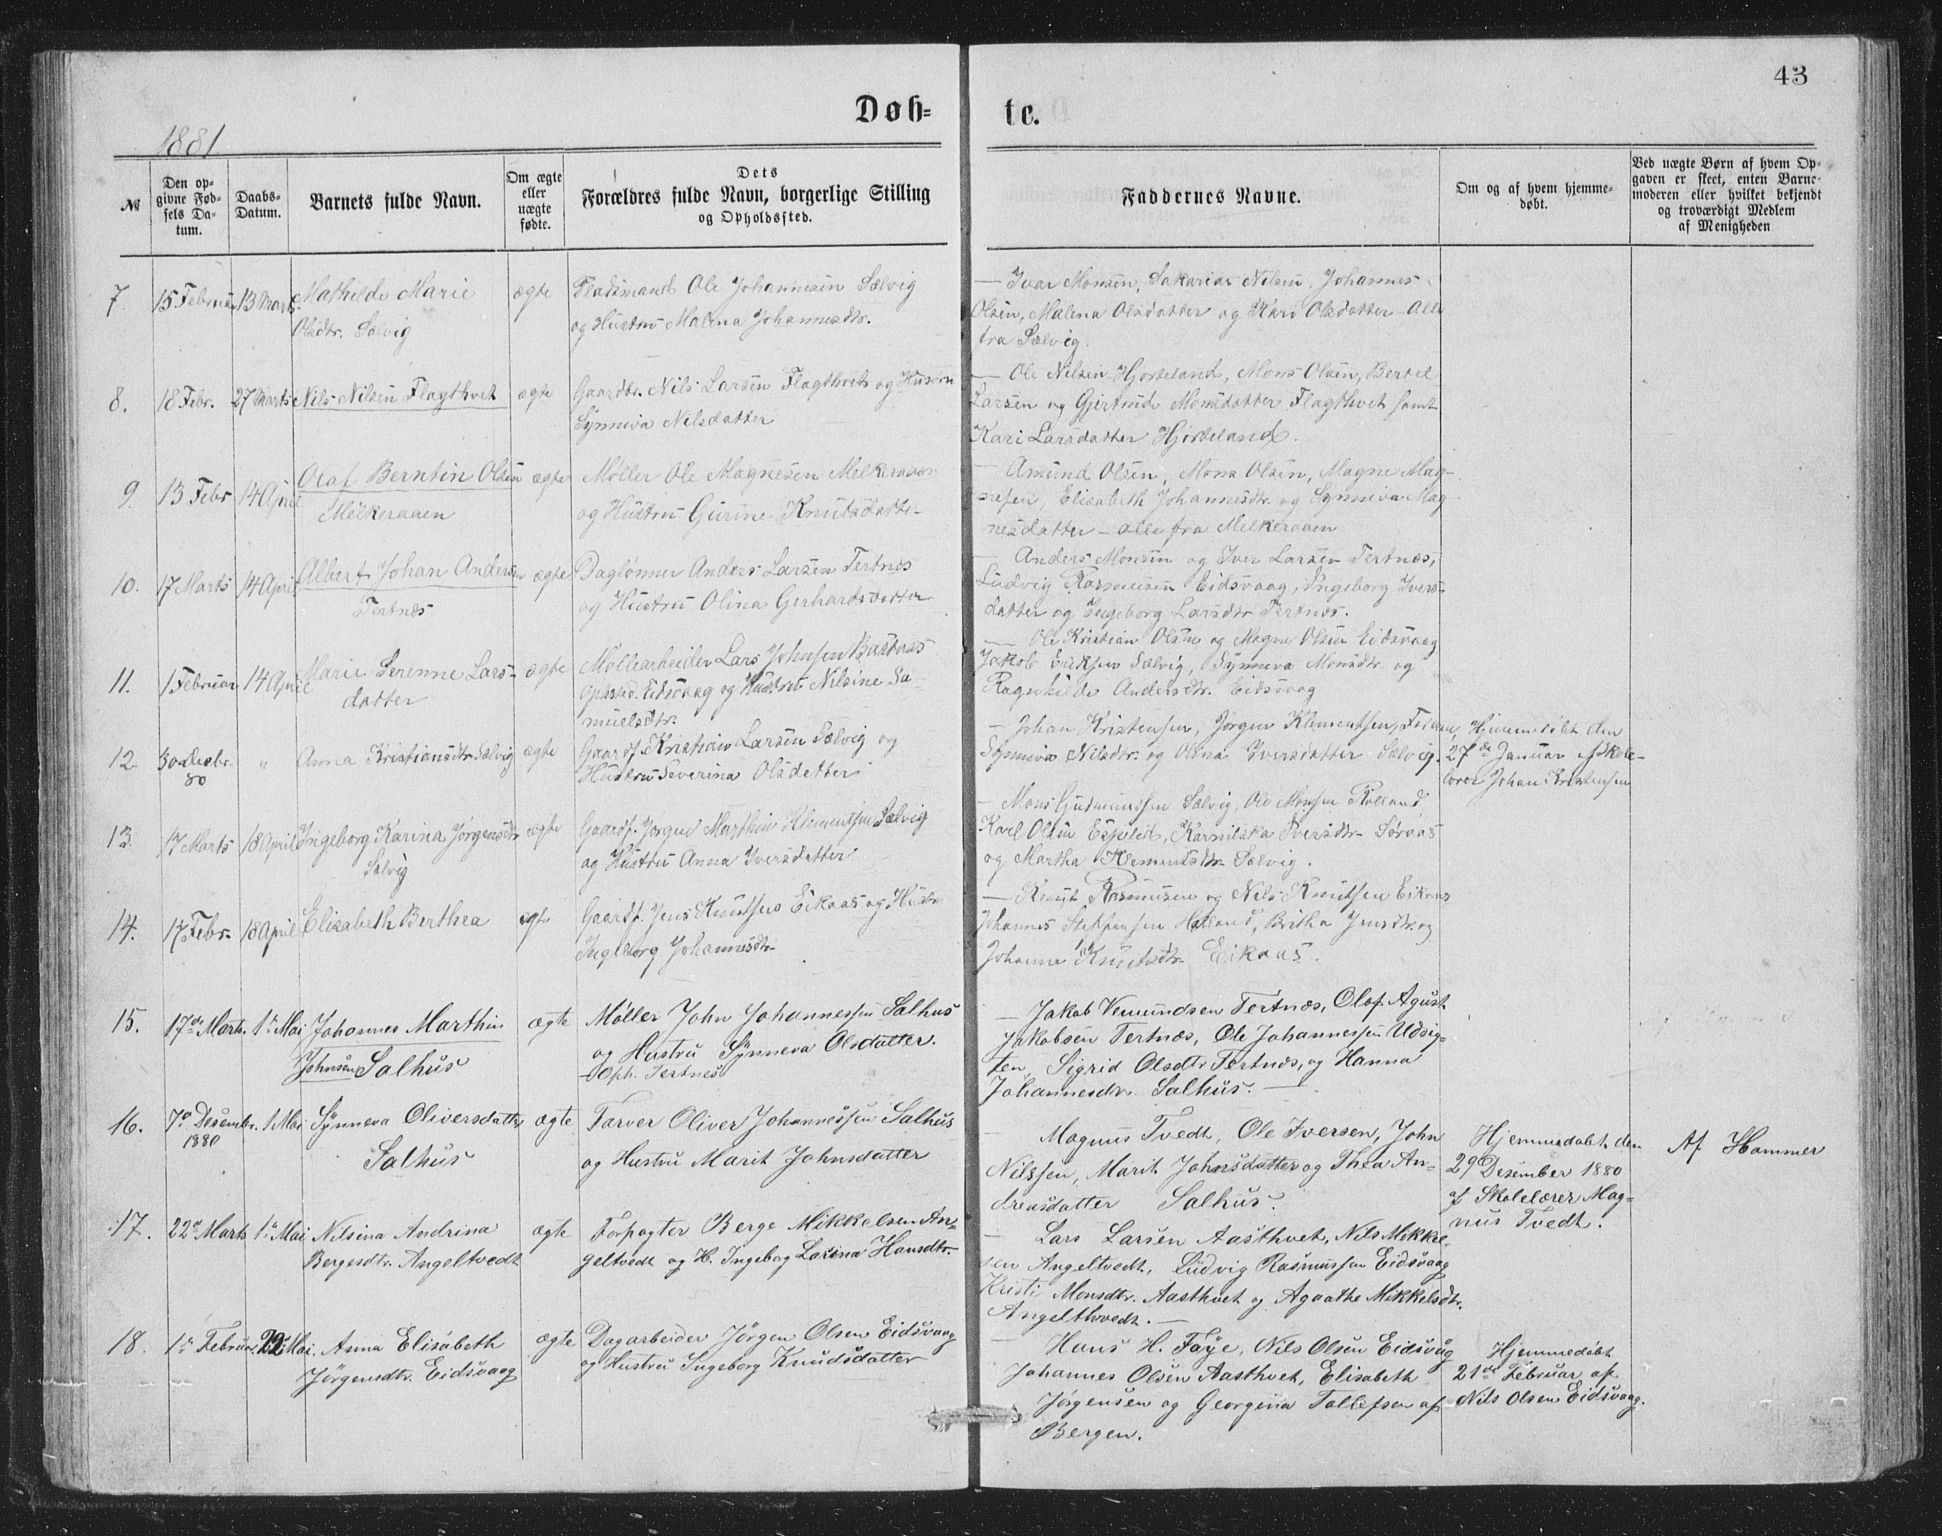 43
Døb= te.
1881
№
Den op=
givne Fød=
sels Da=
tum.
Daabs=
Datum.
Barnets fulde Navn.
Om ægte
eller
uægte
fødte.
Dets
Forældres fulde Navn, borgerlige Stilling
og Opholdssted.
Faddernes Navne.
Om og af hvem hjemme=
døbt.
Ved uægte Børn af hvem Op=
gaven er skeet, enten Barne=
moderen eller hvilket bekjendt
og troværdigt Medlem
af Menigheden
7. 15 Februar 13 Marts Mathilde Marie
Olsdtr. Sælvig
ægte
Pladsmand Ole Johannesen Sælvig
og Hustru Malena Johannesdtr.
— Ivar Monsen, Sakarias Nilsen, Johannes
Olsen, Malena Olsdatter og Kari Olsdatter – Alle
fra Sælvig.
8. 18 Febr. 27 Marts Nils Nilsen Flagthvet
ægte
Gaardbr. Nils Larsen Flagthvet og Hustru
Synneva Nilsdatter
— Ole Nilsen Hjorteland, Mons Olsen, Bertel
Larsen og Gjertrude Monsdatter Flagthvet samt
Kari Larsdatter Hjorteland.
9. 13 Febr 14 April Olaf Berntin Olsen
Melkeraaen
ægte
Møller Ole Magnesen Melkeraaen
og Hustru Gurine Knutsdatter
— Amund Olsen, Mons Olsen, Magne Mag-
nesen, Elisabeth Johannesdtr. og Synneva Mag
nesdatter – alle fra Melkeraaen
10. 17 Marts 14 April Albert Johan Andersen
Tertnæs
ægte
Daglønner Anders Larsen Tertnes
og Hustru Olina Gerhardsdatter
— Anders Monsen og Iver Larsen Tertnæs,
Ludvig Rasmusen Eidsvaag, Ingeborg Ivers-
datter og Ingeborg Larsdtr Tertnes.
11. 1 Februar 14 April Marie Serenne Lars-
datter
ægte
Møllearbeider Lars Johnsen
Opholdsted. Eidsvaag og Hustru Nilsine Sa-
muelsdtr.
— Ole Kristian Olsen og Magne Olsen Eidsvaag
Jakob Eriksen Sælvig, Synneva Monsdtr. og
Ragnhilde Andersdtr. Eidsvaag
12. 30 Decbr.
80
„ Anna Kristiansdtr Sælvig
ægte
Gaardf. Kristian Larsen Sælvig og
Hustru Severina Olsdatter
— Johan Kristensen, Jørgen Klementsen,
Synneva Nilsdtr. og Olina Iversdatter Sælvig.
Hjemmedøbt den
27de Januar af Skole-
lærer Johan Kristensen
13. 17 Marts 18 April Ingeborg Karina Jørgensdtr
Sælvig
ægte
Gaardf. Jørgen Marthin Klementsen Sælvig
og Hustru Anna Iversdatter
— Mons Gudmundsen Sælvig, Ole Monsen Rolland,
Karl Olsen Espelid, Iversdtr Søraas
og Martha Klementsdtr Sælvig.
14. 17 Febr. 18 April Elisabeth Berthea
ægte
Gaardf. Jens Knutsen Eikaas og Hustru
Ingeborg Johannesdtr
— Knut Rasmusen og Nils Knutsen Eikaas
Johannes Steffensen Hetland, Britha Jensdtr. og
Johanne Knutsdtr Eikaas.
15. 17de Marts 1ste Mai Johannes Marthin
Johnsen Salhus
ægte
Møller John Johannessen Salhus
og Hustru Synneva Olsdatter.
Oph. Tertnes
— Jakob Vemundsen Tertnæs, Olof Agust
Jakobsen Tertnæs, Ole Johannessen Udsig-
ten, Sigrid Olsdtr. Tertnæs, og Hanna
Johannesdtr. Salhus. —
16. 7de Desembr.
1880
1 Mai Synneva Oliversdatter
Salhus
ægte
Farver Oliver Johannessen Salhus
og Hustru Marit Johnsdatter
Magnus Tvedt, Ole Iversen, John
Nilssen, Marit Johnsdatter og Thea An-
drensdatter Salhus.
Hjemmedøbt den
29 Desember 1880
af Skolelærer Mag-
nus Tvedt.
Af Hammer
17. 22de Marts 1ste Mai Nilsina Andrina
Bergesdtr. Angeltvedt
ægte
Forpagter Berge Mikkelsen An-
geltvedt og H. Ingeborg Larina Hansdtr.
— Lars Larsen Aasthvet, Nils Mikkel-
sen Angeltvedt, Ludvig Rasmussen Eidsvaag
Kristi Monsdtr. Aasthvet og Agaathe Mikkelsdtr.
Angelthvedt. —
18. 1ste Februar. 22 Mai. Anna Elisabeth
Jørgensdtr. Eidsvaag
ægte
Dagarbeider Jørgen Olsen Eidsvaag
og Hustru Ingeborg Knudsdatter
— Hans H. Faye, Nils Olsen Eidsvåg
Johannes Olsen Aasthvet, Elisabeth
Jørgensen og Georgina Tollefsen af
Bergen.
Hjemmedøbt
21de Februar af
Nils Olsen Eidsvaag.